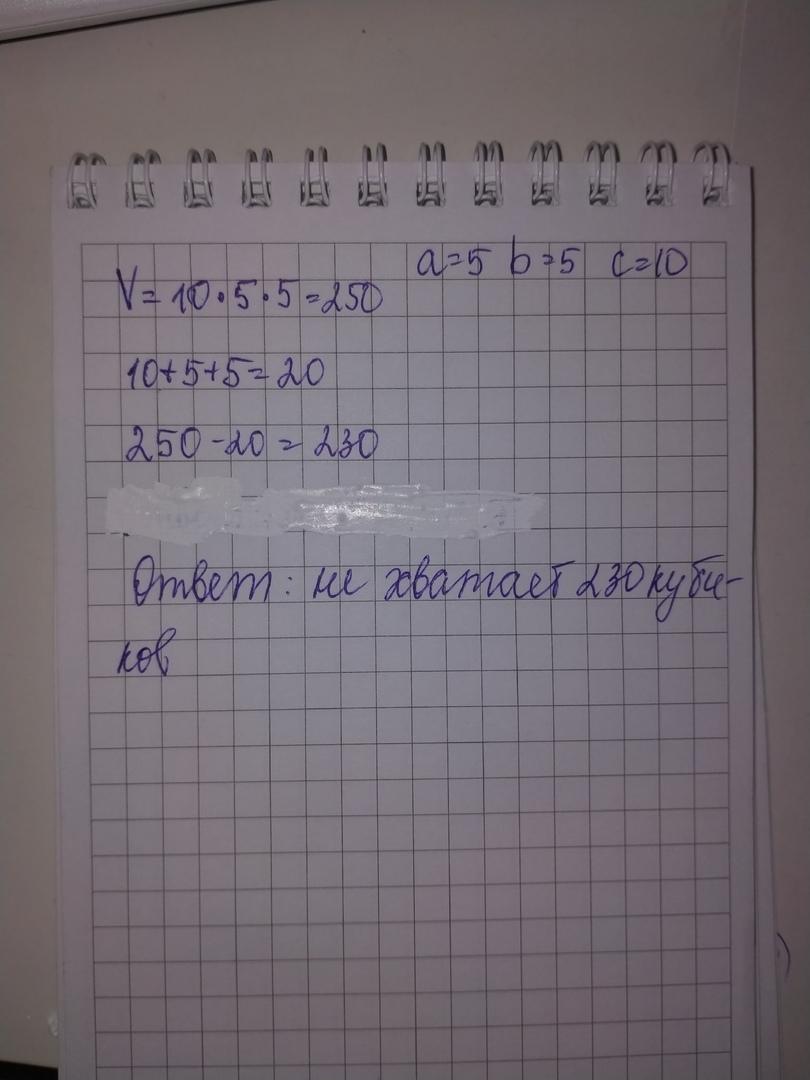 a=5 b=5 c=10
V= 10·5·5=250
10+5+5=20
250-20=230
Ответ: не хватает 230 куби-
ков